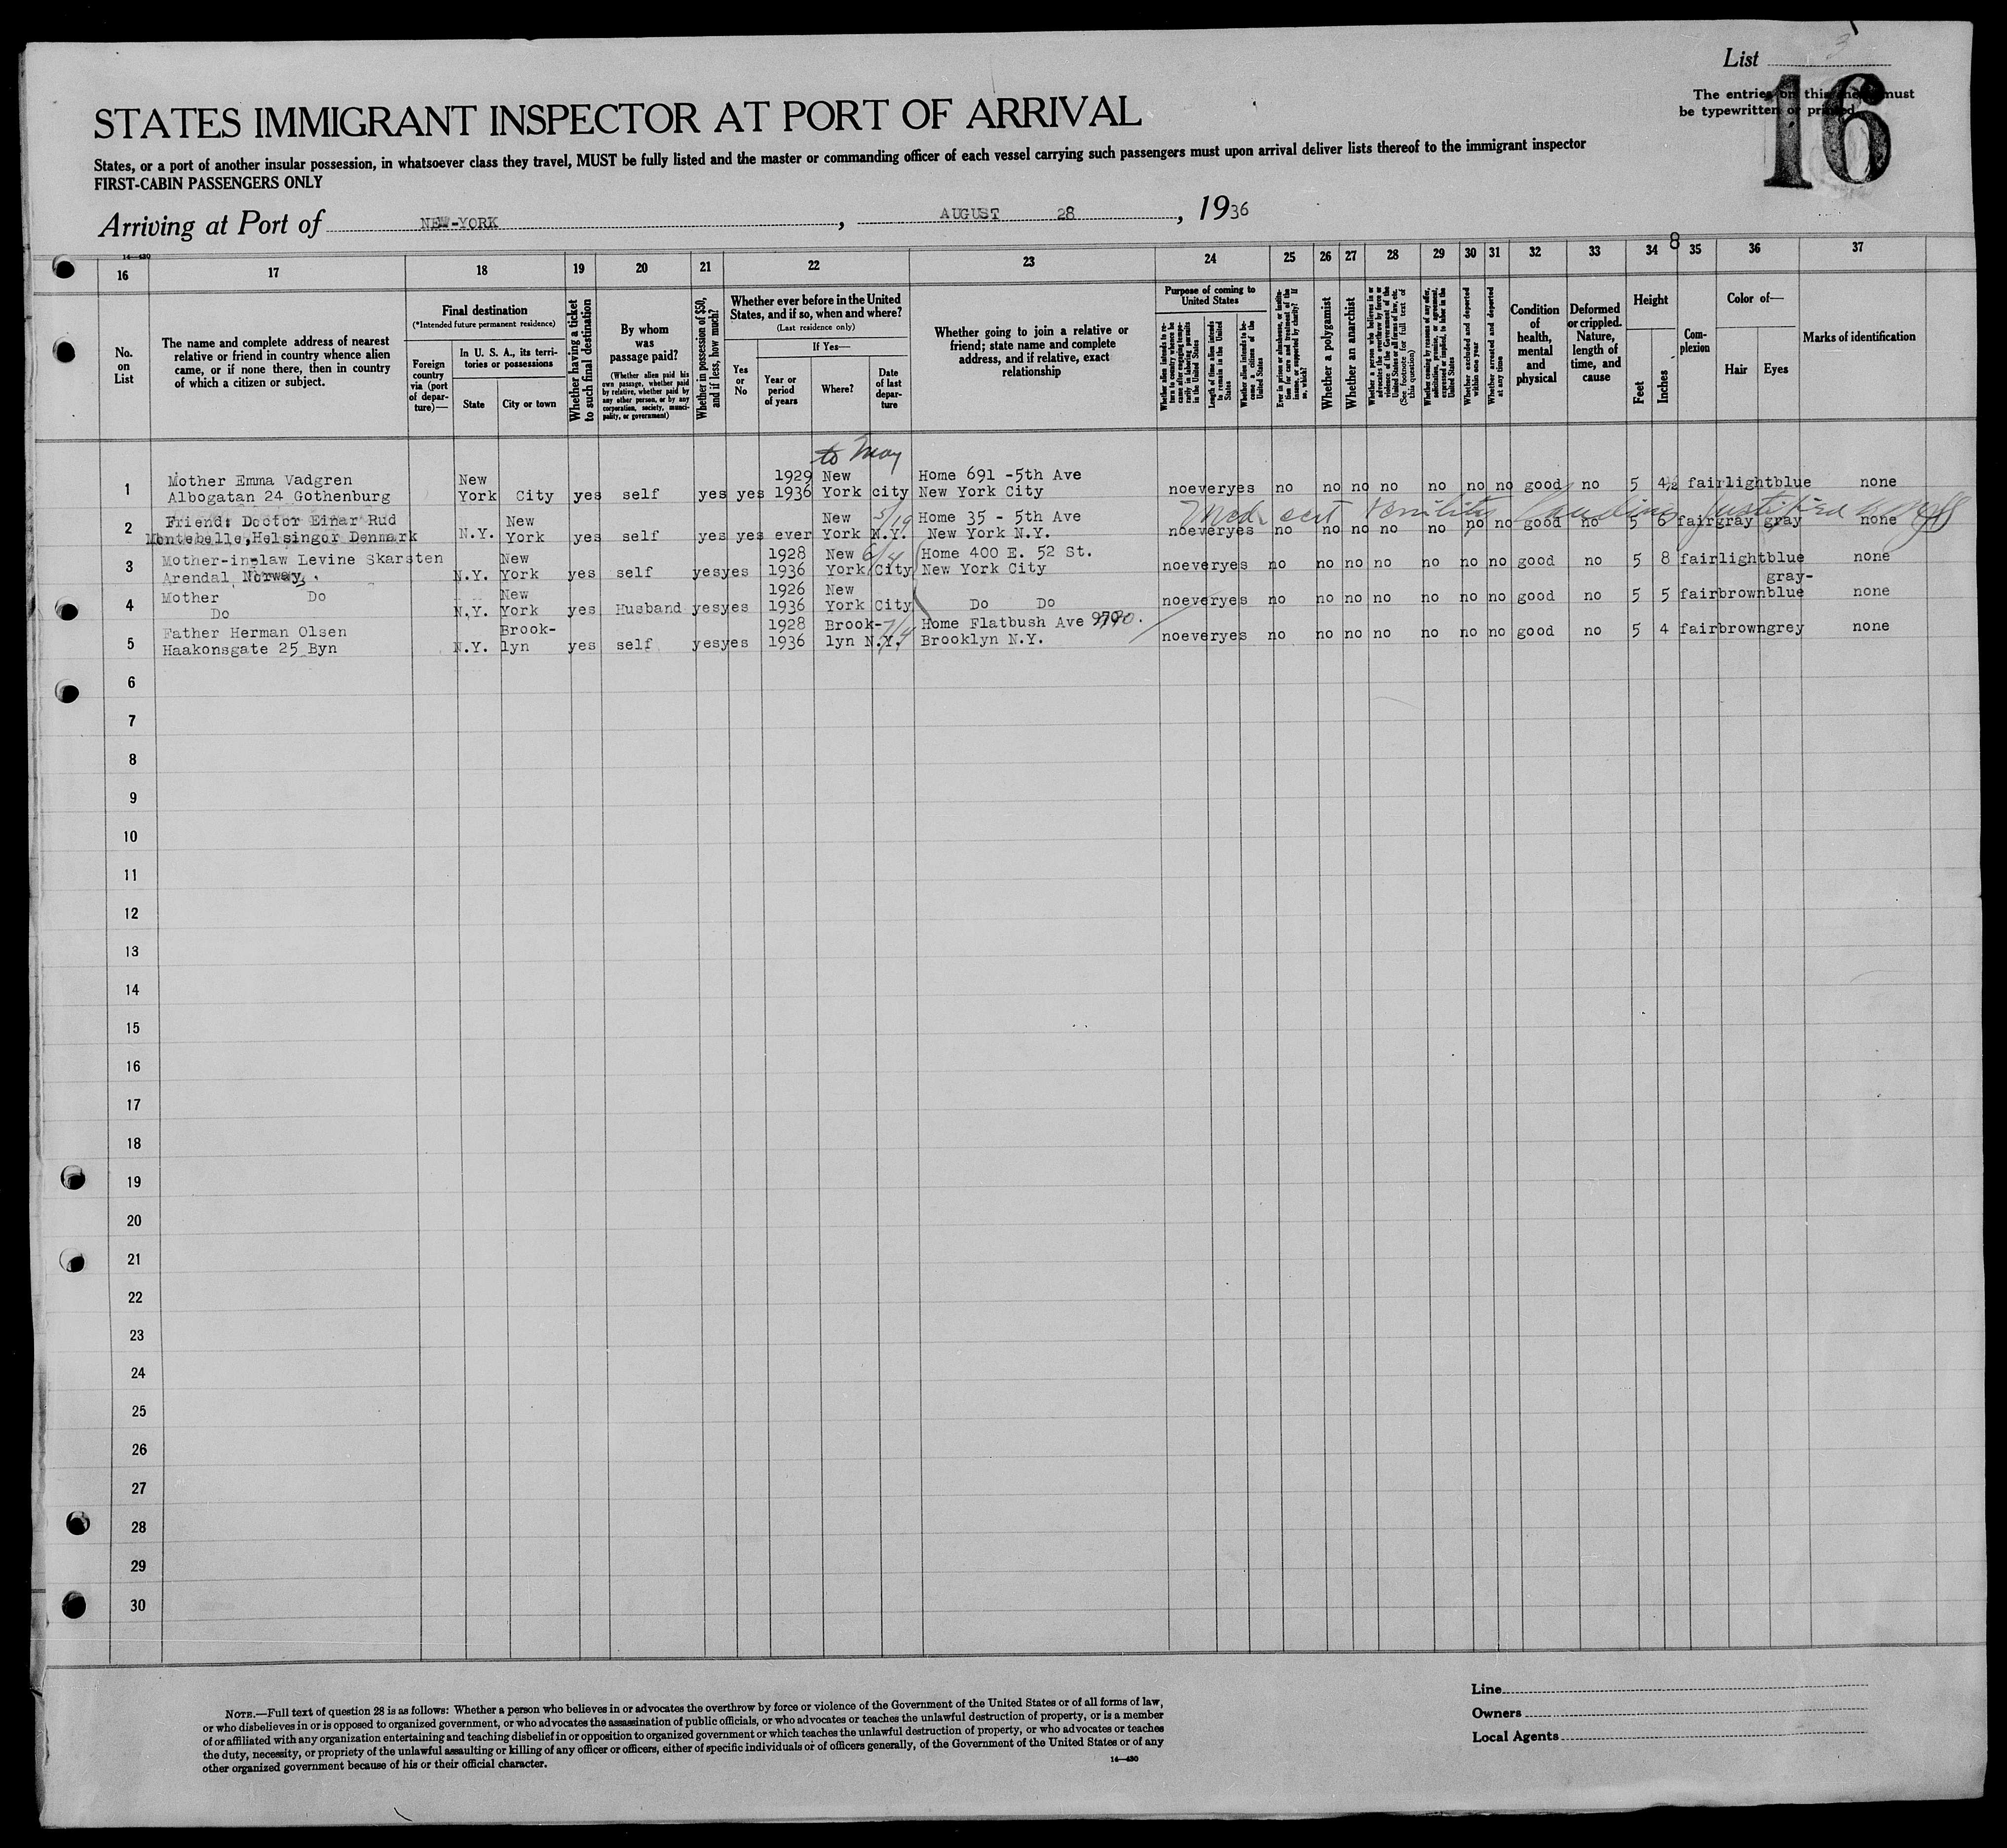 List 3
16
The entries on this sheet must
be typewritten or printed
STATES IMMIGRANT INSPECTOR AT PORT OF ARRIVAL
States, or a port of another insular possession, in whatsoever class they travel, MUST be fully listed and the master or commanding officer of each vessel carrying such passengers must upon arrival deliver lists thereof to the immigrant inspector
FIRST-CABIN PASSENGERS ONLY
Arriving at Port of NEW-YORK, AUGUST 28, 1936
14—430
16 17 18 19 20 21 22 23 24 25 26 27 28 29 30 31 32 33 34 8 35 36 37
No. on List
The name and complete address of nearest relative or friend in country whence alien came, or if none there, then in country of which a citizen or subject.
Final destination
(*Intended future permanent residence)
Foreign country via (port of departure)—
In U. S. A., its territories or possessions
State
City or town
Whether having a ticket to such final destination
By whom was passage paid?
(Whether alien paid his own passage, whether paid by relative, whether paid by any other person, or by any corporation, society, municipality, or government)
Whether in possession of $50, and if less, how much?
Whether ever before in the United States, and if so, when and where?
(Last residence only)
Yes or No
If Yes—
Year or period of years
Where?
Date of last departure
Whether going to join a relative or friend; state name and complete address, and if relative, exact relationship
Purpose of coming to United States
Whether alien intends to return to country whence he came after engaging temporarily in laboring pursuits in the United States
Length of time alien intends to remain in the United States
Whether alien intends to become a citizen of the United States
Ever in prison or almshouse, or institution for care and treatment of the insane, or supported by charity? If so, which?
Whether a polygamist
Whether an anarchist
Whether a person who believes in or advocates the overthrow by force or violence of the Government of the United States or all forms of law, etc. (See footnote for full text of this question)
Whether coming by reason of any offer, solicitation, promise, or agreement, expressed or implied, to labor in the United States
Whether excluded and deported within one year
Whether arrested and deported at any time
Condition of health, mental and physical
Deformed or crippled. Nature, length of time, and cause
Height
Feet
Inches
Complexion
Color of—
Hair
Eyes
Marks of identification
to May
Mother Emma Vadgren New 1929 New Home 691 -5th Ave
1 Albogatan 24 Gothenburg York City yes self yes yes 1936 York city New York City no ever yes no no no no no no no good no 5 4½ fair light blue none
Friend: Doctor Einar Rud New New 5/19 Home 35 - 5th Ave
Med cert landing justified
2 Montebelle,Helsingor Denmark N.Y. York yes self yes yes ever York N.Y. New York N.Y. no ever yes no no no no no no no good no 5 6 fair gray gray none
Mother-in-law Levine Skarsten New 1928 New 6/4 Home 400 E. 52 St.
3 Arendal Norway. N.Y. York yes self yes yes 1936 York City New York City no ever yes no no no no no no no good no 5 8 fair light blue none
Mother Do New 1926 New gray-
4 Do N.Y. York yes Husband yes yes 1936 York City Do Do no ever yes no no no no no no no good no 5 5 fair brown blue none
Father Herman Olsen Brook- 1928 Brook- 7/4 Home Flatbush Ave
5 Haakonsgate 25 Byn N.Y. lyn yes self yes yes 1936 lyn N.Y. Brooklyn N.Y. no ever yes no no no no no no no good no 5 4 fair brown grey none
6
7
8
9
10
11
12
13
14
15
16
17
18
19
20
21
22
23
24
25
26
27
28
29
30
NOTE.—Full text of question 28 is as follows: Whether a person who believes in or advocates the overthrow by force or violence of the Government of the United States or of all forms of law,
or who disbelieves in or is opposed to organized government, or who advocates the assassination of public officials, or who advocates or teaches the unlawful destruction of property, or is a member
of or affiliated with any organization entertaining and teaching disbelief in or opposition to organized government or which teaches the unlawful destruction of property, or who advocates or teaches
the duty, necessity, or propriety of the unlawful assaulting or killing of any officer or officers, either of specific individuals or of officers generally, of the Government of the United States or of any
other organized government because of his or their official character.
14—430
Line
Owners
Local Agents